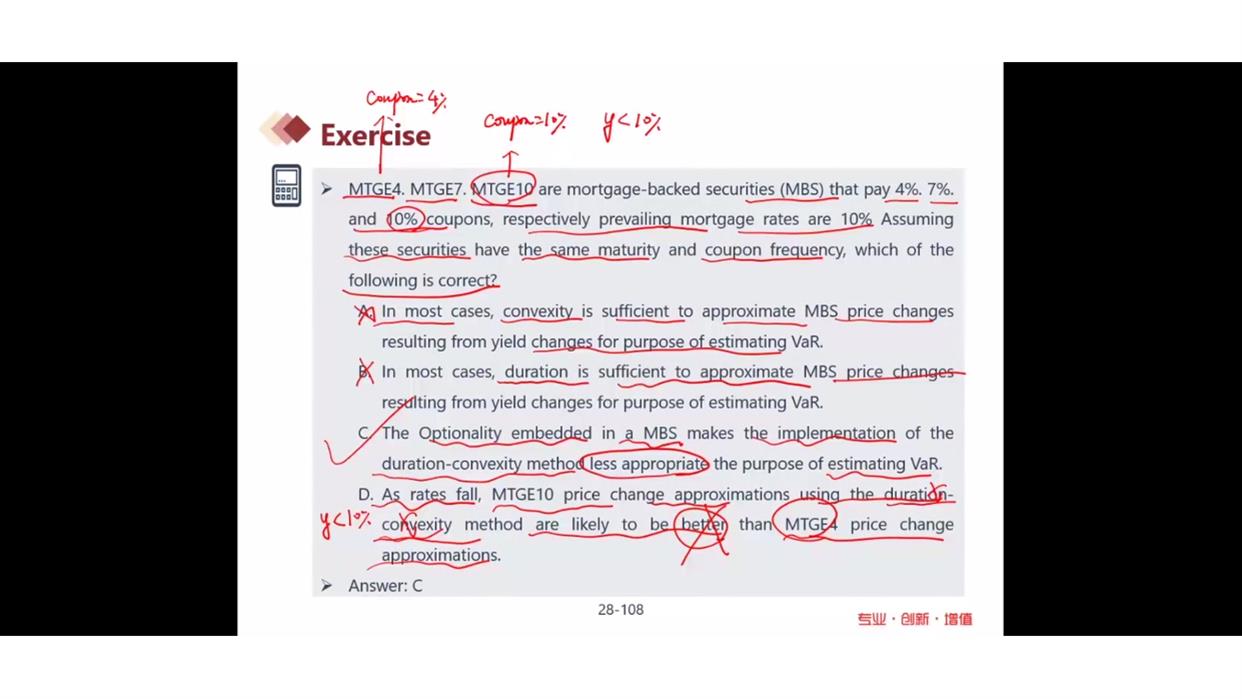 Coupon=4%
Coupon=10% y<10%
Exercise
MTGE4. MTGE7. MTGE10 are mortgage-backed securities (MBS) that pay 4%. 7%.
and 10% coupons, respectively prevailing mortgage rates are 10% Assuming
these securities have the same maturity and coupon frequency, which of the
following is correct?
A. In most cases, convexity is sufficient to approximate MBS price changes
resulting from yield changes for purpose of estimating VaR.
B. In most cases, duration is sufficient to approximate MBS price changes
resulting from yield changes for purpose of estimating VaR.
C. The Optionality embedded in a MBS makes the implementation of the
duration-convexity method less appropriate the purpose of estimating VaR.
D. As rates fall, MTGE10 price change approximations using the duration-
y<10% convexity method are likely to be better than MTGE4 price change
approximations.
Answer: C
28-108
专业·创新·增值